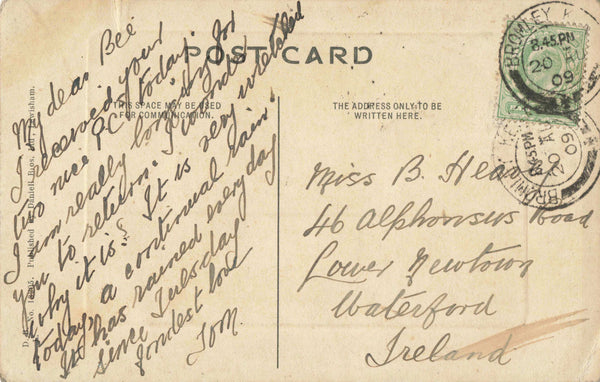 POST CARD
THIS SPACE MAY BE USED
FOR COMMUNICATION.
THE ADDRESS ONLY TO BE
WRITTEN HERE.
My dear Bee
I received your
two nice PC's today.
I am really longing for
you to return. I wonder
why it is? It is very wretched
today, a continual rain.
It has rained everyday
since Tuesday
fondest love
Tom.
Miss B.
46 Alphonsus Road
Lower Newtown
Waterford
Ireland
BROMLEY K
8.45.PM
20
09
BROMLEY
8.45PM
20 AU
09
Published by Daniell Bros. Ltd., Lewisham.